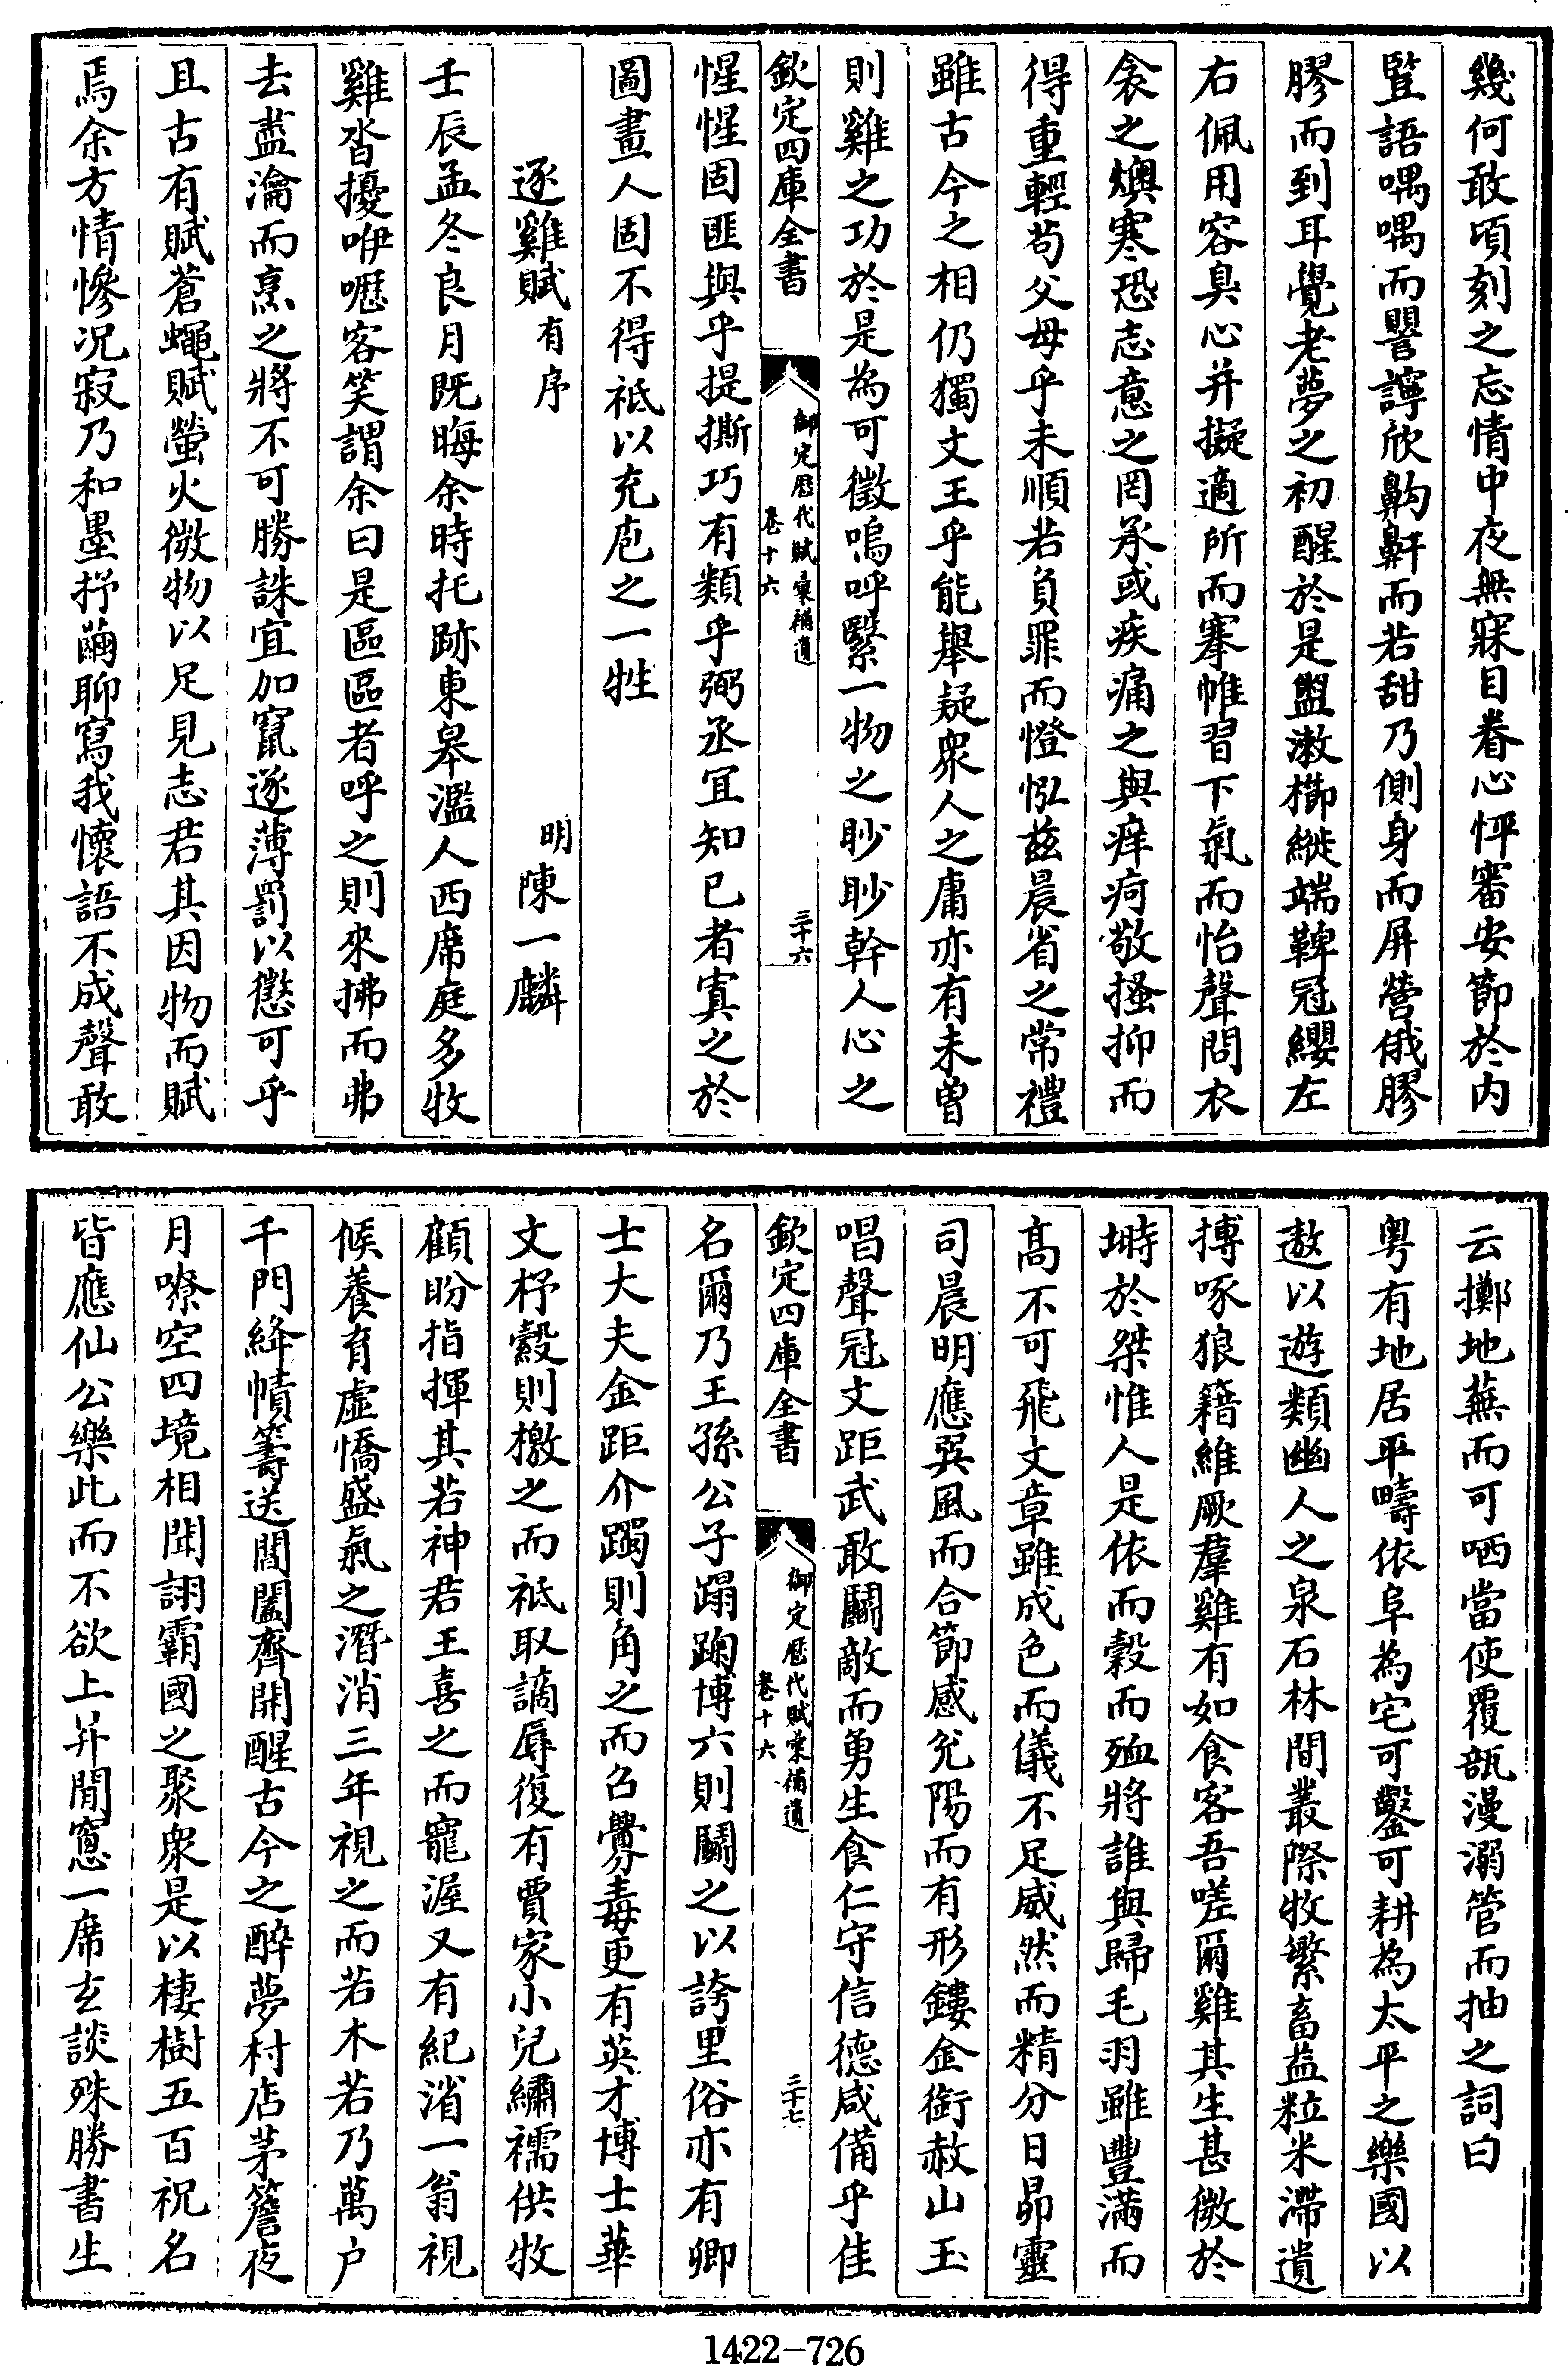 幾何敢頃刻之忘情中夜無寐目眷心怦審安節於内
豎語喁喁而譻諄欣鼿鼾而若甜乃側身而屏營俄膠
膠而到耳覺老夢之初醒於是盥漱櫛縰端鞞冠纓左
右佩用容臭心并擬適所而搴帷習下氣而怡聲問衣
衾之燠寒恐志意之罔承或疾痛之與痒疴敬搔抑而
得重輕苟父母乎未順若負罪而憕忪兹晨省之常禮
雖古今之相仍獨文王乎能舉疑衆人之庸亦有未曽
則雞之功於是為可徵嗚呼緊一物之眇眇幹人心之
欽定四庫全書
御定歷代賦彙補遺
卷十六
三十六
惺惺固匪與乎提撕巧有類乎弼丞宜知已者寘之於
圖畫人固不得祇以充庖之一牲
逐雞賦有序
明陳一麟
壬辰孟冬良月既晦余時托跡東皋濫人西席庭多牧
雞沓擾咿嚦客笑謂余曰是區區者呼之則來拂而弗
去盍瀹而烹之將不可勝誅宜加竄逐薄罰以懲可乎
且古有賦蒼蠅賦螢火微物以足見志君其因物而賦
焉余方情慘況寂乃和墨抒繭聊寫我懷語不成聲敢
云擲地蕪而可哂當使覆瓿漫溺管而抽之詞曰
粤有地居平疇依阜為宅可鑿可耕為太平之樂國以
遨以遊類幽人之泉石林間叢際牧繁畜益粒米滯遺
摶啄狼籍維厥羣雞有如食客吾嗟爾雞其生甚微於
塒於桀惟人是依而穀而殈將誰與歸毛羽雖豐滿而
髙不可飛文章雖成色而儀不足威然而精分日昴靈
司晨明應巽風而合節感兊陽而有形鏤金銜赦山玉
唱聲冠文距武敢鬭敵而勇生食仁守信德咸備乎佳
欽定四庫全書
御定歷代賦彙補遺
卷十六
三十七
名爾乃王孫公子蹋踘博六則鬭之以誇里俗亦有卿
士大夫金距介躅則角之而召釁毒更有英才博士華
文杼縠則檄之而祇取謫辱復有賈家小兒繡襦供牧
顧盼指揮其若神君王喜之而寵渥又有紀渻一翁視
候養育虛憍盛氣之潛消三年視之而若木若乃萬户
千門絳幘籌送閶闔齊開醒古今之醉夢村店茅簷夜
月嘹空四境相聞詡霸國之聚衆是以棲樹五百祝名
皆應仙公樂此而不欲上昇閒窻一席玄談殊勝書生
1422-726